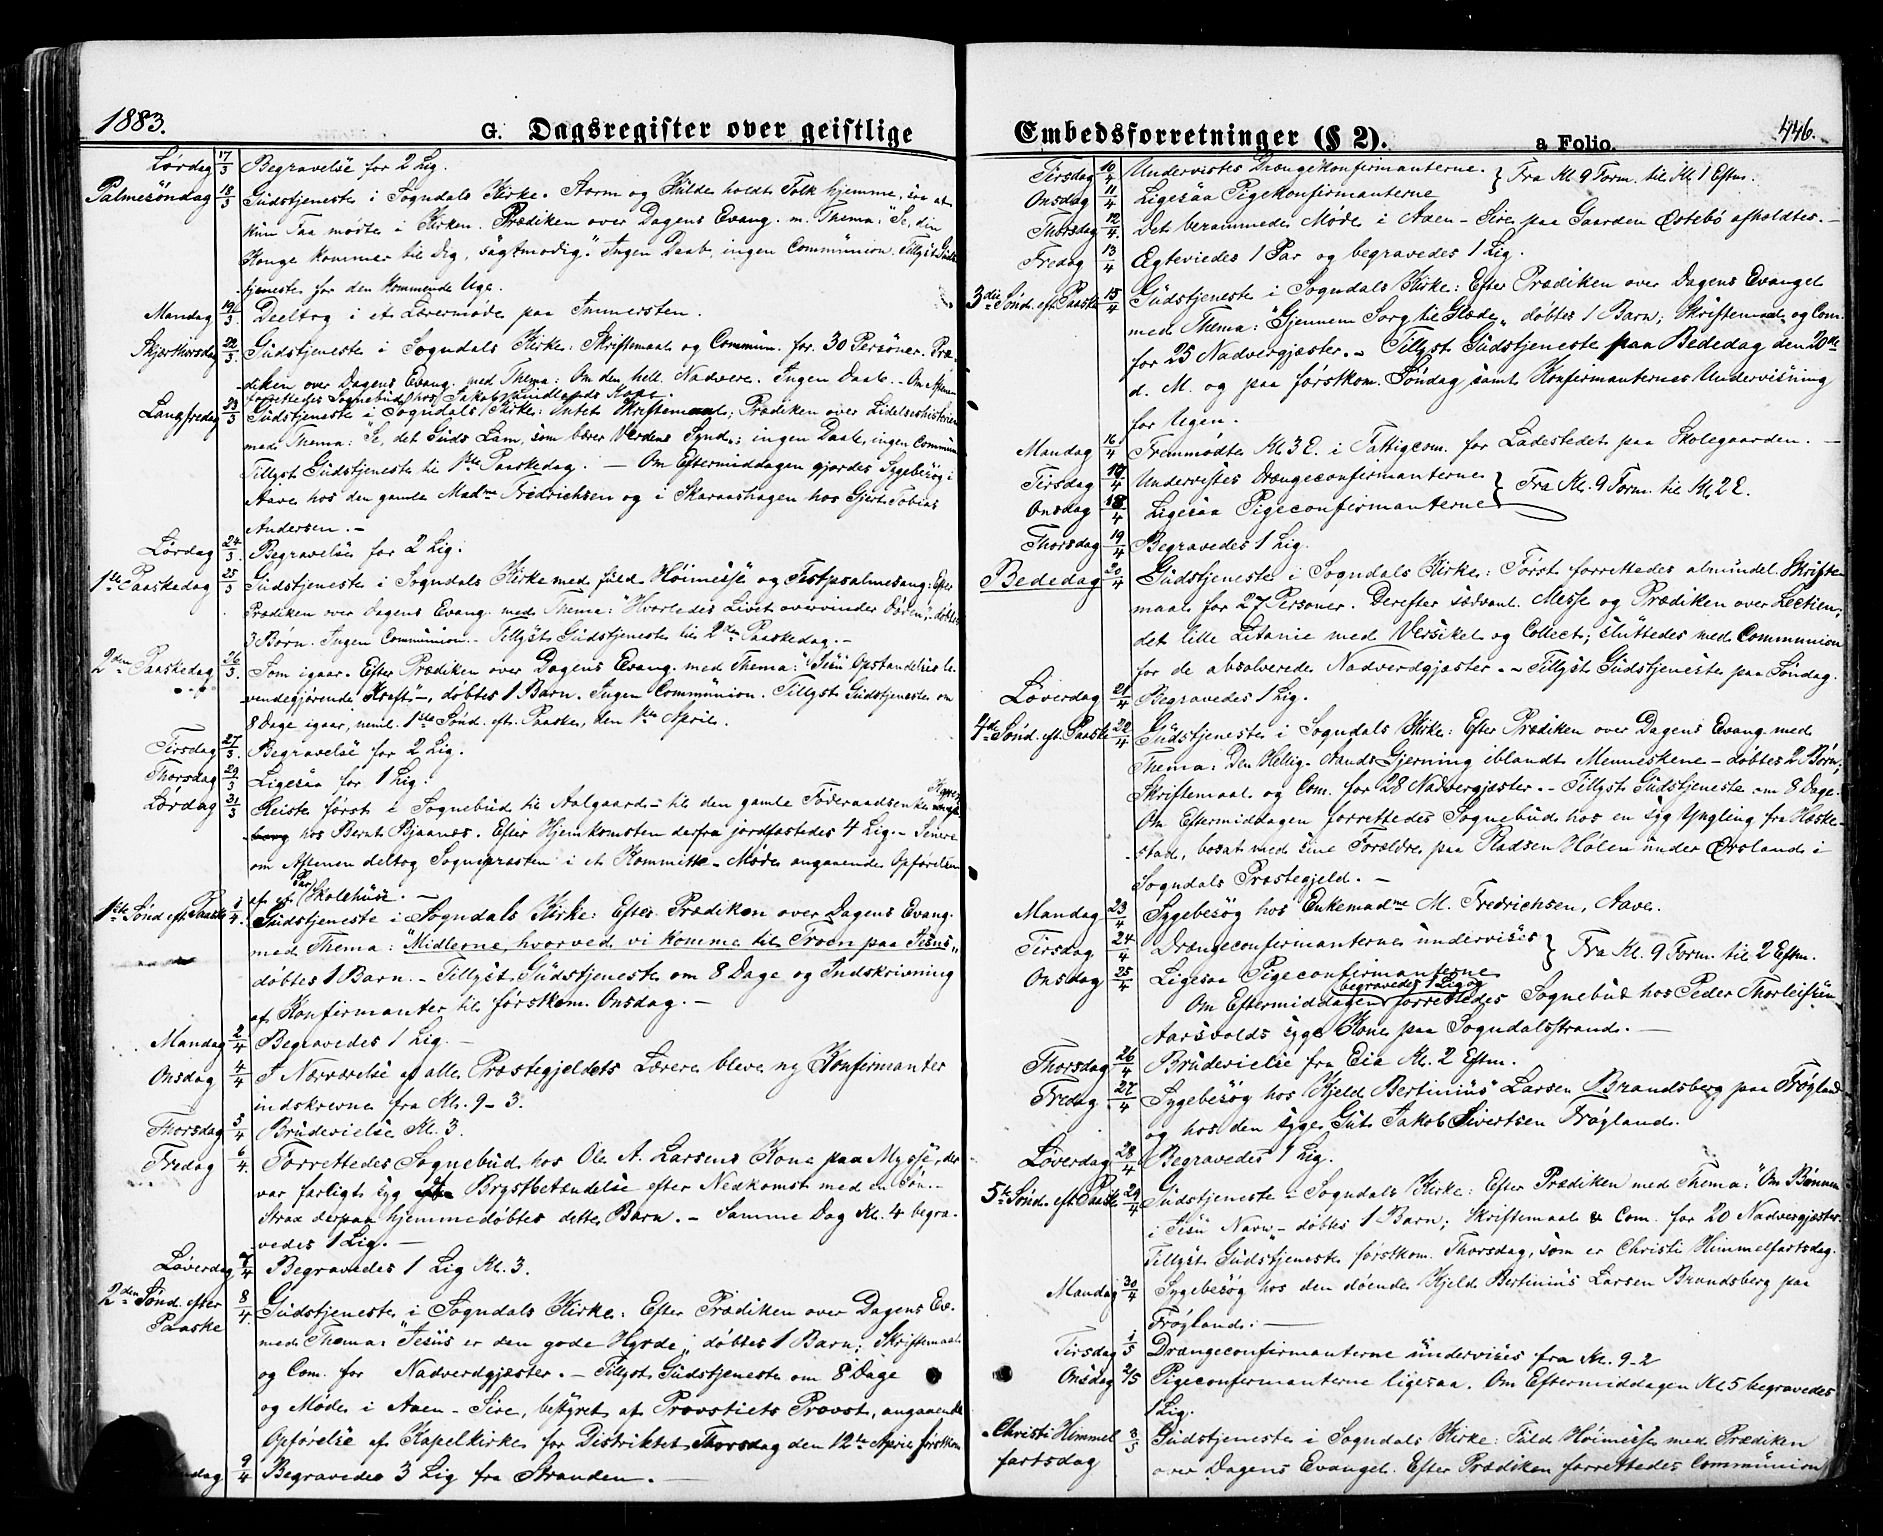 1883.
G. Dagsregister over geistlige
Lørdag 17/3 Begravelse for 2 Lig.
Palmesøndag 18/3 Gudstjeneste i Sogndals Kirke. Storm og Kulde holdt Folk hjemme, saa at
kun Faa mødte i Kirken. Prædiken over Dagens Evang. m. Thema: "Se, din
Konge kommer til Dig, sagtmodig". Ingen Daab, ingen Communion. Tillyst Guds-
tjeneste for den kommende Uge.
Mandag 19/3 Deeltog i et Lærermøde paa
Skjærthorsdag 22/3 Gudstjeneste i Sogndals Kirke: Skriftemaal og Commun. for 30 Personer. Præ-
diken over Dagens Evang. med Thema: Om den hell. Nadvere. Ingen Daab. - Om Aftenen
forrettedes Sognebud hos Jakob Kone.
Langfredag 23/3 Gudstjeneste i Sogndals Kirke: Intet Skriftemaal; Prædiken over Lidelseshistorien
med Thema: "Se, det Guds Lam, som bærer Verdens Synd"; ingen Daab, ingen Commun.
Tillyst Gudstjeneste til 1ste Paaskedag. - Om Eftermiddagen gjordes Sygebesøg i
Aave hos den gamle Madme Fredrichsen og i Skaraashagen hos Gjert Tobias
Andersen. -
Lørdag 24/3 Begravelse for 2 Lig.
1ste Paaskedag 25/3 Gudstjeneste i Sogndals Kirke med fuld Høimesse og Festpsalmesang: Efter
Prædiken over Dagens Evang. med Thema: "Hvorledes Livet overvinder Døden", døbtes
3 Børn. Ingen Communion. - Tillyst Gudstjeneste til 2den Paaskedag. -
2den Paaskedag 26/3 Som igaar. Efter Prædiken over Dagens Evang. med Thema: "Jesu Opstandelses le-
vendegjørende Kraft" -, døbtes 1 Barn. Ingen Communion. Tillyst Gudstjeneste om
8 Dage igaar, neml. 1ste Sønd. eft. Paaske, den 1ste April.
Tirsdag 27/3 Begravelse for 2 Lig.
Thorsdag 29/3 Ligesaa for 1 Lig.
Lørdag 31/3 Reiste først i Sognebud til Aalgaard - til den gamle Føderaadsenke
hos Bernt Bjaanes. Efter Hjemkomsten derfra jordfæstedes 4 Lig. - Senere
om Aftenen deltog Sognepræsten i et Kommitte-Møde angaaende Opførelsen
af et Par Skolehuse. -
1ste Sønd. eft. Paaske 1/4. Gudstjeneste i Sogndals Kirke: Efter Prædiken over Dagens Evang.
med Thema: "Midlerne, hvorved vi komme til Troen paa Jesus"
døbtes 1 Barn. - Tillyst Gudstjeneste om 8 Dage og Indskrivning
af Konfirmanter til førstkom. Onsdag. -
Mandag 2/4 Begravedes 1 Lig. -
Onsdag 4/4 I Nærværelse af alle Præstegjeldets Lærere bleve ny Konfirmanter
indskrevne fra Kl. 9-3.
Thorsdag 5/4 Brudevielse Kl. 3.
Fredag 6/4. Forrettedes Sognebud hos Ole A. Larsens Kone paa Mysse, der
var farligt syg Brystbetændelse efter Nedkomst med en Søn. -
Strax derpaa hjemmedøbtes dette Barn. - Samme Dag Kl. 4 begra-
vedes 1 Lig. -
Løverdag 7/4 Begravedes 1 Lig Kl. 3.
2den Sønd. efter Paaske 8/4. Gudstjeneste i Sogndals Kirke: Efter Prædiken over Dagens Ev.
med Thema: "Jesus er den gode Hyrde", døbtes 1 Barn; Skriftemaal
og Com. for Nadverdgjæster. - Tillyst Gudstjeneste om 8 Dage
og Møde i Aaen-Sire, bestyret af Provstiets Provst, angaaende
Opførelse af Kapelkirke for Distriktet Thorsdag den 12te April førstkom.
9/4 Begravedes 3 Lig fra Stranden. -
Embedsforretninger (§ 2).
a Folio. 446.
Tirsdag 10/4 Undervistes Drengekonfirmanterne. } Fra Kl. 9 Form. til Kl. 1 Eftm.
Onsdag 11/4 Ligesaa Pigekonfirmanterne
Thorsdag 12/4. Det berammede Møde i Aaen-Sire paa Gaarden Østebø afholdtes. -
Fredag 13/4 Ægteviedes 1 Par og begravedes 1 Lig.
3die Sønd. eft. Paaske 15/4 Gudstjeneste i Sogndals Kirke: Efter Prædiken over Dagens Evangel
med Thema: "Gjennem Sorg til Glæde" døbtes 1 Barn; Skriftemaal og Com.
for 25 Nadvergjæster. - Tillyst Gudstjeneste paa Bededag den 20de
d. M. og paa førstkom. Søndag samt Konfirmanternes Undervisning
for Ugen.
Mandag 16/4 Fremmødte Kl. 3 E. i Fattigcom. for Ladestedet paa Skolegaarden. -
Tirsdag 17/4 Undervistes Drængeconfirmanterne } Fra Kl. 9 Form. til Kl. 2 E.
Onsdag 18/4 Ligesaa Pigeconfirmanterne
Thorsdag 19/4 Begravedes 1 Lig.
Bededag 20/4 Gudstjeneste i Sogndals Kirke: Først forrettedes almindel. Skrifte-
maal for 27 Personer. Derefter sædvanl. Messe og Prædiken over Lectien,
det lille Litanie med Versikel og Collect; sluttedes med Communion
for de absolverede Nadverdgjæster. - Tillyst Gudstjeneste paa Søndag.
Løverdag 21/4 Begravedes 1 Lig.
4de Sønd. eft. Paaske 22/4 Gudstjeneste i Sogndals Kirke: Efter Prædiken over Dagens Evang. med
Thema: Den Hellig-Aands Gjerning iblandt Menneskene - døbtes 2 Børn;
Skriftemaal og Com. for 28 Nadvergjæster. - Tillyst Gudstjeneste om 8 Dage.
Om Eftermiddagen forrettedes Sognebud hos en syg Yngling fra Hæske-
stad, bosat med sine Forældre paa Pladsen Hølen under Ørsland i
Sogndals Præstegjeld. -
Mandag 23/4 Sygebesøg hos Enkemadme M. Fredrichsen, Aave.
Tirsdag 24/4 Drængeconfirmanterne undervises } Fra Kl. 9 Form. til 2 Eftm.
Onsdag 25/4 Ligesaa Pigeconfirmanterne
Om Eftermiddagen begravedes 1 Lig og forrettedes Sognebud hos Peder Thorleifsen
Aarsvolds syge Kone paa Sogndalsstrand. -
Thorsdag 26/4 Brudevielse fra Eia Kl. 2 Eftm.
Fredag 27/4 Sygebesøg hos Kjeld Bertinius Larsen Brandsberg paa Frøyland
og hos den syge Gut Jakob Sivertsen Frøyland.
Løverdag 28/4 Begravedes 1 Lig.
5te Sønd. eft. Paaske 29/4 Gudstjeneste i Sogndals Kirke: Efter Prædiken med Thema: "Om Bønnen
i Jesu Navn" - døbtes 1 Barn; Skriftemaal & Com. for 20 Nadvergjæster.
Tillyst Gudstjeneste førstkom. Thorsdag, som er Christi Himmelfartsdag.
Mandag 30/4 Sygebesøg hos den døende Kjeld Bertinius Larsen Brandsberg paa
Frøyland. -
Tirsdag 1/5 Drængeconfirmanterne undervises fra Kl. 9-2
Onsdag 2/5 Pigeconfirmanterne ligesaa. Om Eftermiddagen Kl. 5 begravedes
1 Lig.
Christi Himmelfartsdag 3/5 Gudstjeneste i Sogndals Kirke: Fuld Høimesse med Prædiken
over Dagens Evangel. Efter Prædiken forrettedes Communion